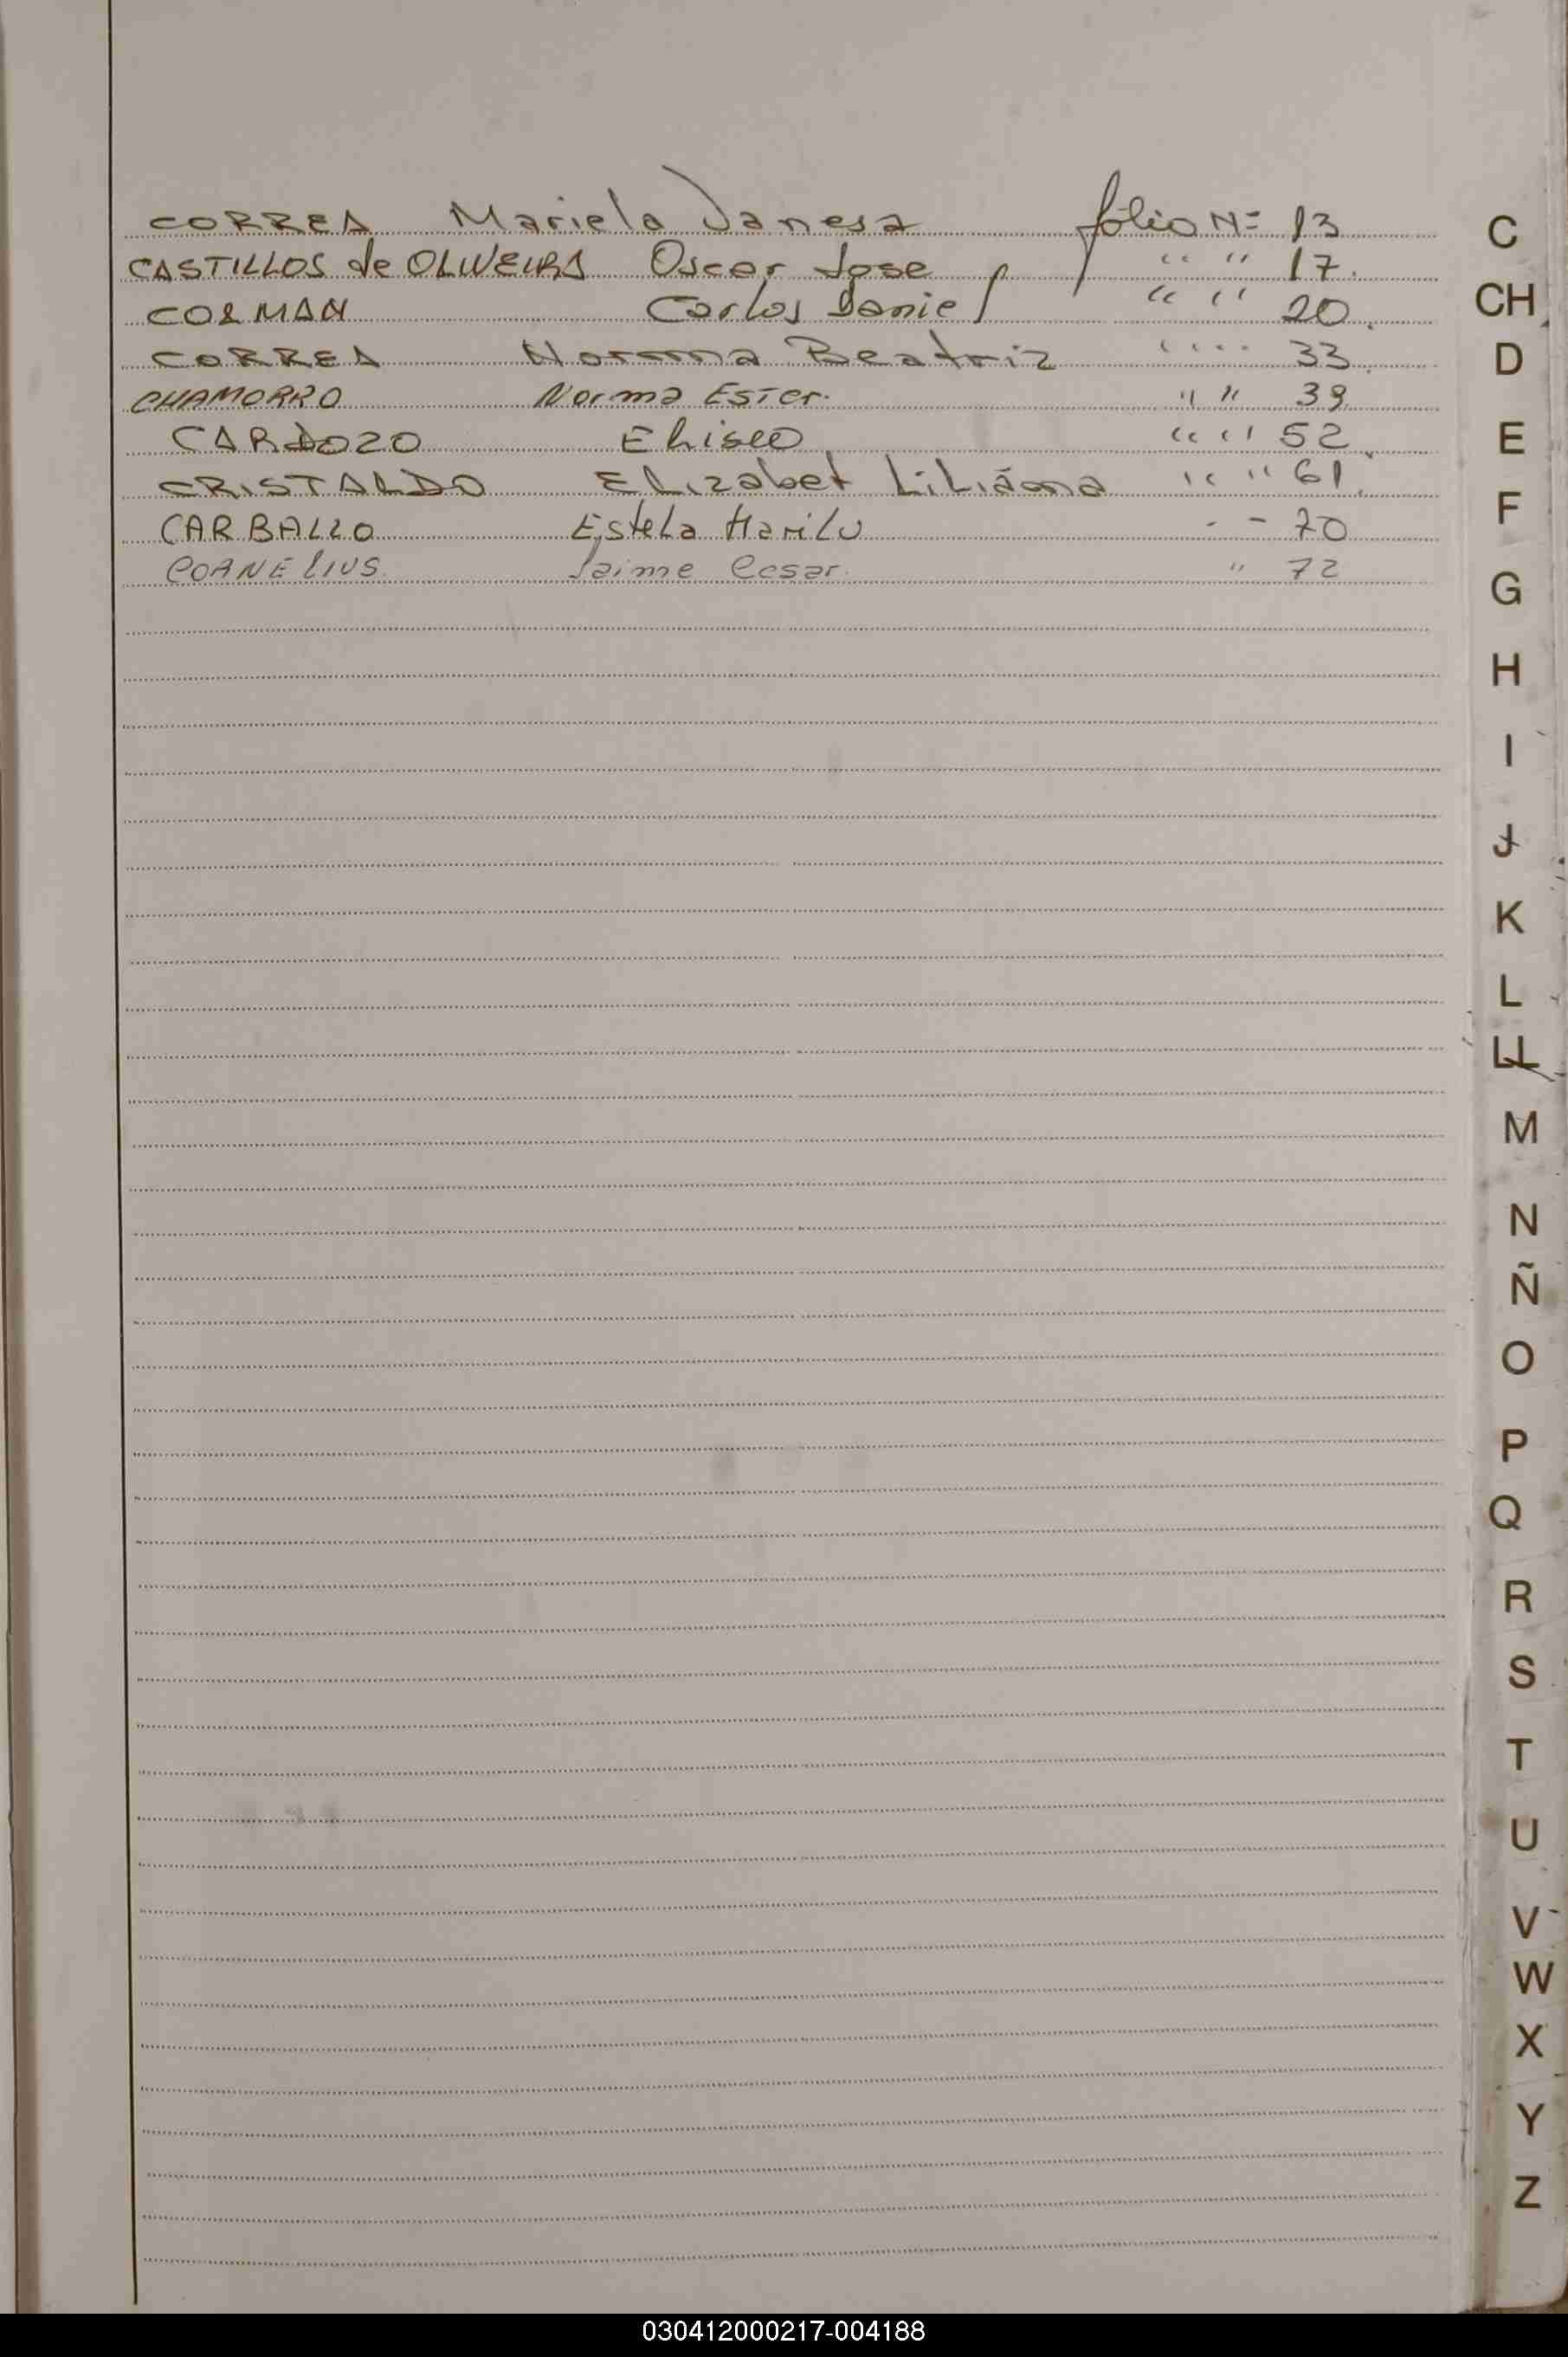 CORREA Mariela Vanesa folio Nº 13
CASTILLOS de OLIVEIRA Oscar Jose " " 17.
COLMAN Carlos Daniel " " 20.
CORREA Norma Beatriz " " 33.
CHAMORRO Norma Ester. " " 39
CARDOZO Eliseo " " 52.
CRISTALDO Elizabet Liliana " " 61.
CARBALLO Estela Marilu - - 70
CORNELIUS. Jaime Cesar. " 72
C
CH
D
E
F
G
H
I
J
K
L
LL
M
N
Ñ
O
P
Q
R
S
T
U
V
W
X
Y
Z
030412000217-004188